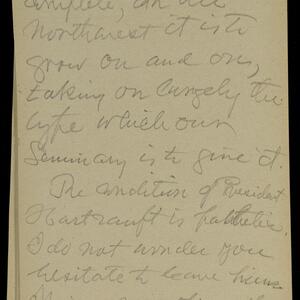 complete, in all
Northwest it is to
grow on and on,
taking on largely the
type which our
Seminary is to give it.
The condition of President
Hartranft is pathetic.
I do not wonder you
hesitate to leave him